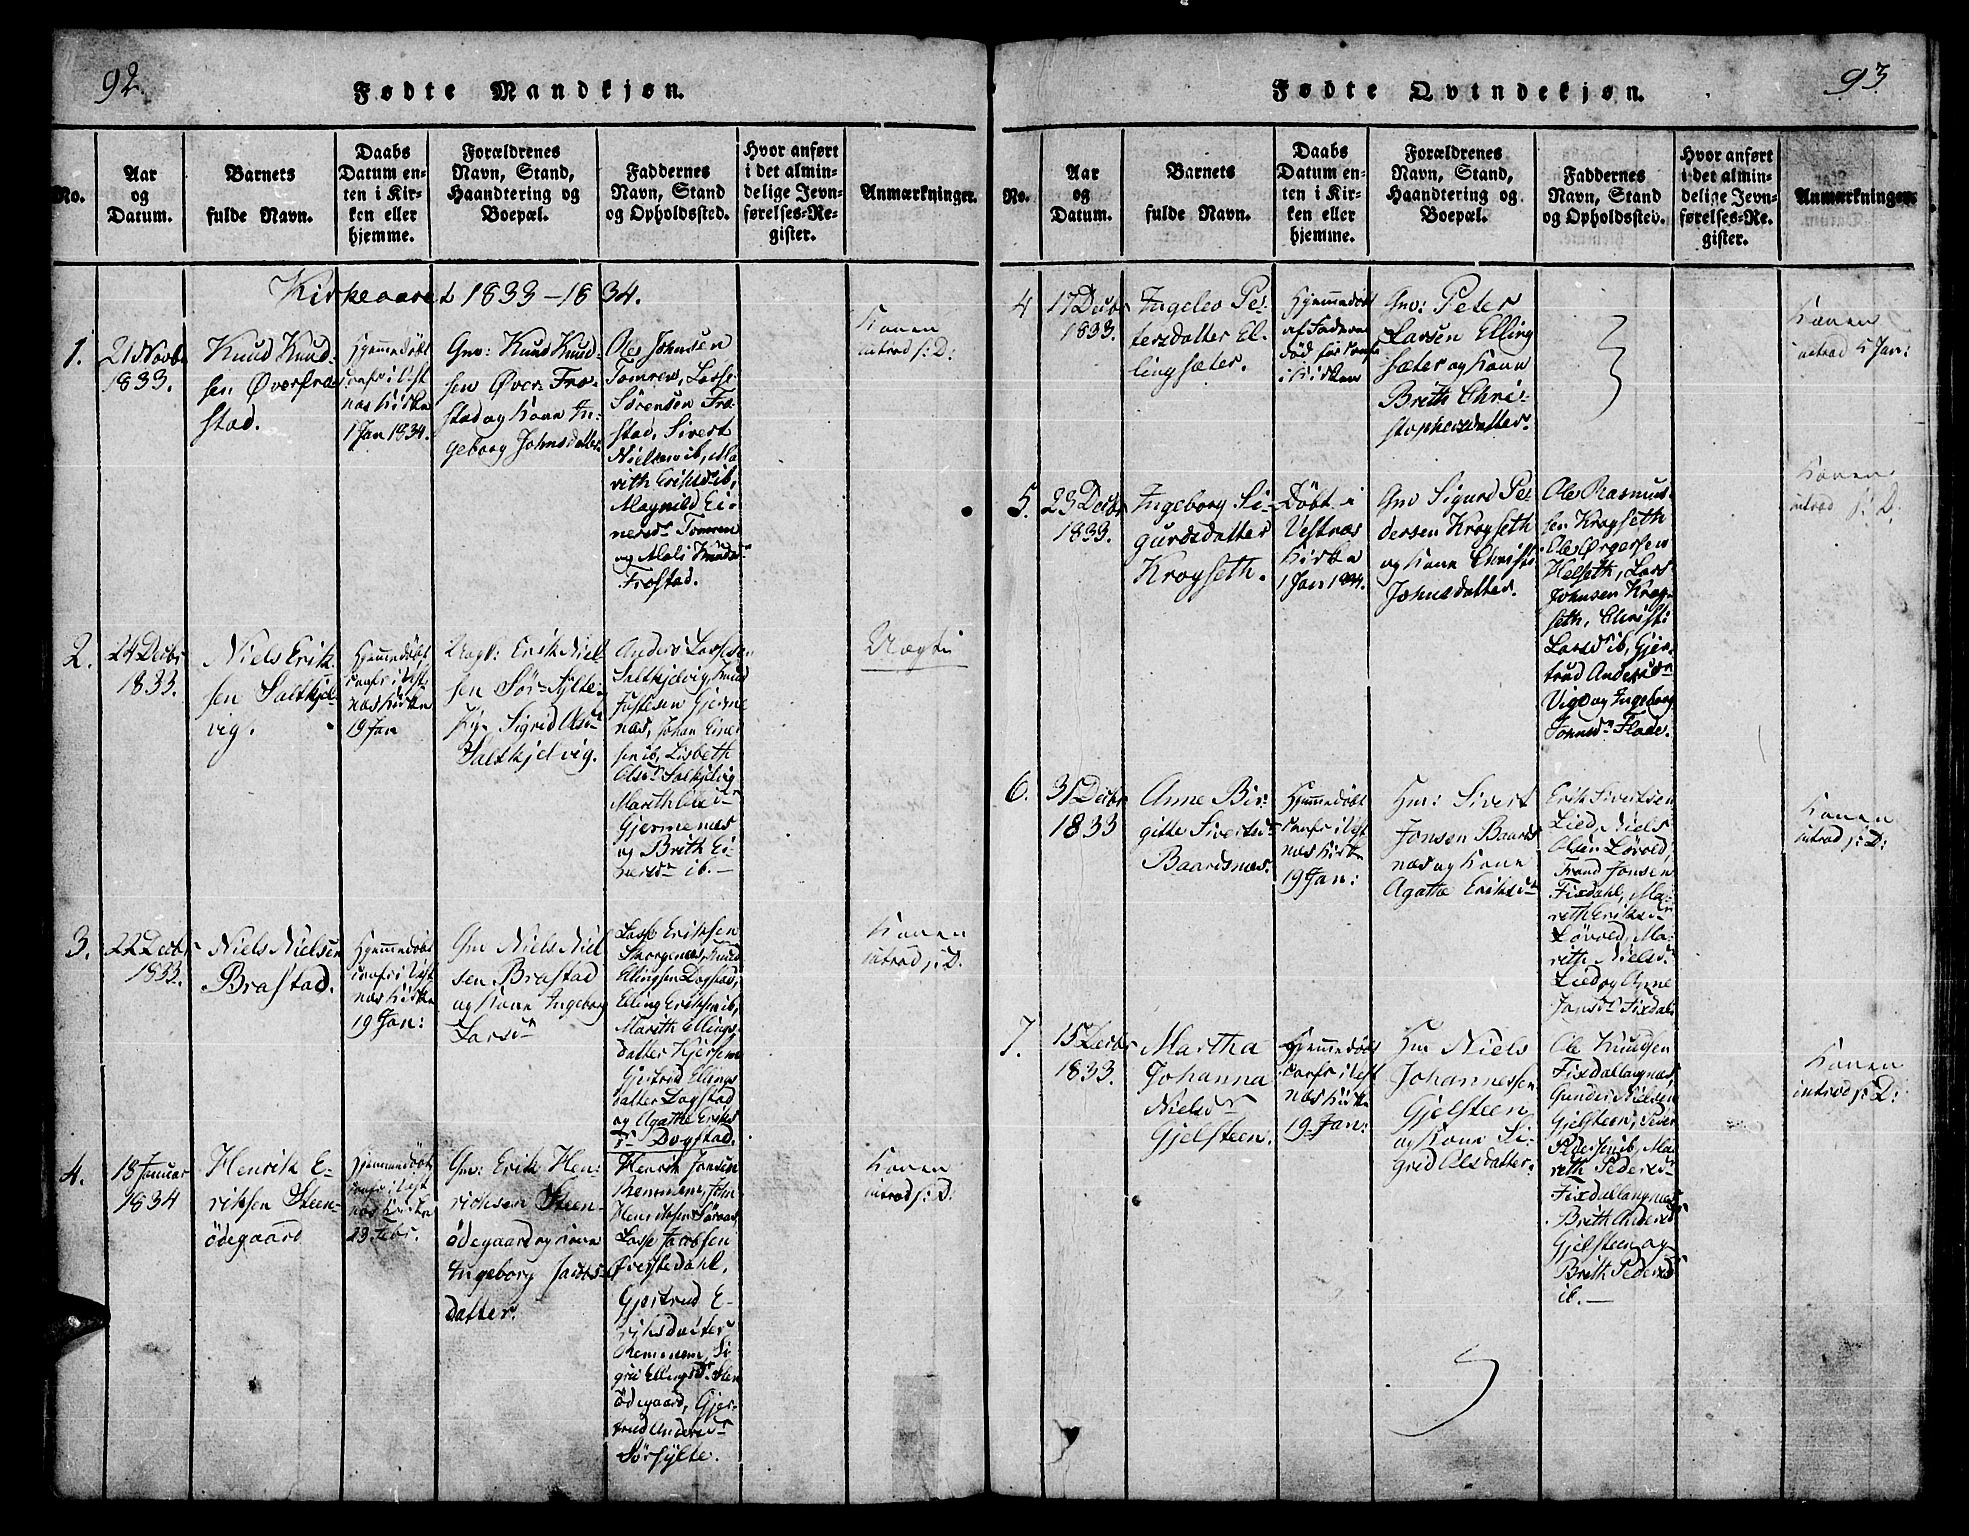 92.
Fødte Mandkjøn.
No.
Aar
og
Datum.
Barnets
fulde Navn.
Daabs
Datum en-
ten i Kir-
ken eller
hjemme.
Forældrenes
Navn, Stand,
Haandtering og
Boepæl.
Faddernes
Navn, Stand
og Opholdssted.
Hvor anført
i det almin-
delige Jevn-
førelses-Re-
gister.
Anmærkninger.
Kirkeaaret 1833-1834.
1.
21 Novb
1833.
Knud Knud-
sen Øverfra-
stad.
Hjemmedøbt
1 Jan 1834.
Gm: Knud Knud-
sen Øver Fra-
stad og Kone In-
geborg Johnsdatter
Ole Johnsen
Tomren, Lasse
Sörensen Fra-
stad, Sivert
Nielsen ib, Ma-
rith Eriksd ib,
Magnild Ei-
nersdr Tomren
og Mali Knudsdr
Frostad.
Konen
introd s: D:
2.
24 Decbr
1833.
Niels Erik
sen Saltkjel-
vig.
Hjemmedøbt
næs Kirke
19 Jan
Erik Niel
sen Sör-Sylte
Sigrid Olsdr
Saltkjelvig.
Anders Lassesen
Saltkjelvig, Knud
Gjerme
næs, Johan Einer
sen ib, Lisbeth
Olsdr Saltkjelvig
Marith
Gjermenæs
og Brith Ei-
nersdr ib.-
Uægte
3.
22 Decbr
1833.
Niels Nielsen
Brastad.
Hjemmedøbt
næs Kirke
19 Jan:
Gm Niels Niel
sen Brastad
og Kone Ingeborg
Larsdr
Lasse Eriksen
Skorgenæs, Knud
Ellingsen Dogstad,
Elling Eriksen ib,
Marith Ellings-
datter Kjersem
Gjertrud Ellings
datter Dogstad
og Agathe Eriks
dr Dogstad.
Konen
introd s: D.
4.
18 Januar
1834
Henrik E-
riksen Steen-
ödegaard
Hjemmedøbt
næs Kirke
23 Febr.
Gm: Erik Hen-
riksen Steen-
ödegaard og Kone
Ingeborg Jacobs-
datter.
Henrik Jonsen
Remmem, John
Henriksen Söraas,
Lasse Jacobsen
Øverstedahl,
Gjertrud E-
riksdatter
Remmem, Si
gri Ellingsdr Sten
ödegaard, Gjer-
trud Andersdr
Sörsylte.
Konen
introd s: D:
93
Fødte Qvindekjøn.
No.
Aar
og
Datum.
Barnets
fulde Navn.
Daabs
Datum en-
ten i Kir-
ken eller
hjemme.
Forældrenes
Navn, Stand,
Haandtering og
Boepæl.
Faddernes
Navn, Stand
og Opholdssted.
Hvor anført
i det almin-
delige Jevn-
førelses-Re-
gister.
Anmærkninger.
4
17 Decbr
1833.
Ingelev Pe-
tersdatter El-
lingsæter.
Hjemmedøbt
af Faderen
död før Conf
i Kirken
Gm: Peter
Larsen Elling
sæter og Kone
Brith Chri-
stophersdatter.
Konen
introd 5 Jan:
5.
23 Decbr
1833.
Ingeborg Si-
gurdsdatter
Krogseth.
Döbt i
Vestnæs
Kirke
1 Jan 1834.
Gm Sigurd Pe-
dersen Krogseth
og Kone Christi
Johnsdatter.
Ole Rasmus-
sen Krogseth
Ole Ørgersen
Helseth, Lars
Johnsen Krog-
seth, Christi
Larsd ib, Gjer-
trud Andersdr
Vige og Ingeborg
Jonsdr Flade.
Konen
introd s: D.
6.
31 Decbr
1833
Anne Bir-
gitte Sivertsdr
Baardsnæs.
Hjemmedøbt
næs Kirke
19 Jan:
Hm: Sivert
Jonsen Baards
næs og Kone
Agatha Eriksdr
Erik Sivertsen
Lied, Niels
Olsen Løvold,
Trond Jonsen
Fixdahl, Ma-
reth Eriksdr
Løvold, Ma-
rith Nielsdr
Lied og Anne
Jonsdr Fixdal
Konen
introd s: D:
7.
15 Decbr
1833.
Martha
Johanna
Nielsdr
Gjelsteen.
Hjemmedøbt
næs Kirke
19 Jan:
Hm Niels
Johannessen
Gjelsteen
og Kone Si-
grid Olsdatter.
Ole Knudsen
Fixdallangnæs,
Gunder Nielsen
Gjelsteen, Peder
Pedersen ib, Ma-
reth Pedersdr
Fixdallangnæs
Brith Andersdr
Gjelsteen og
Brith Pedersdr
ib.-
Konen
introd s: D: